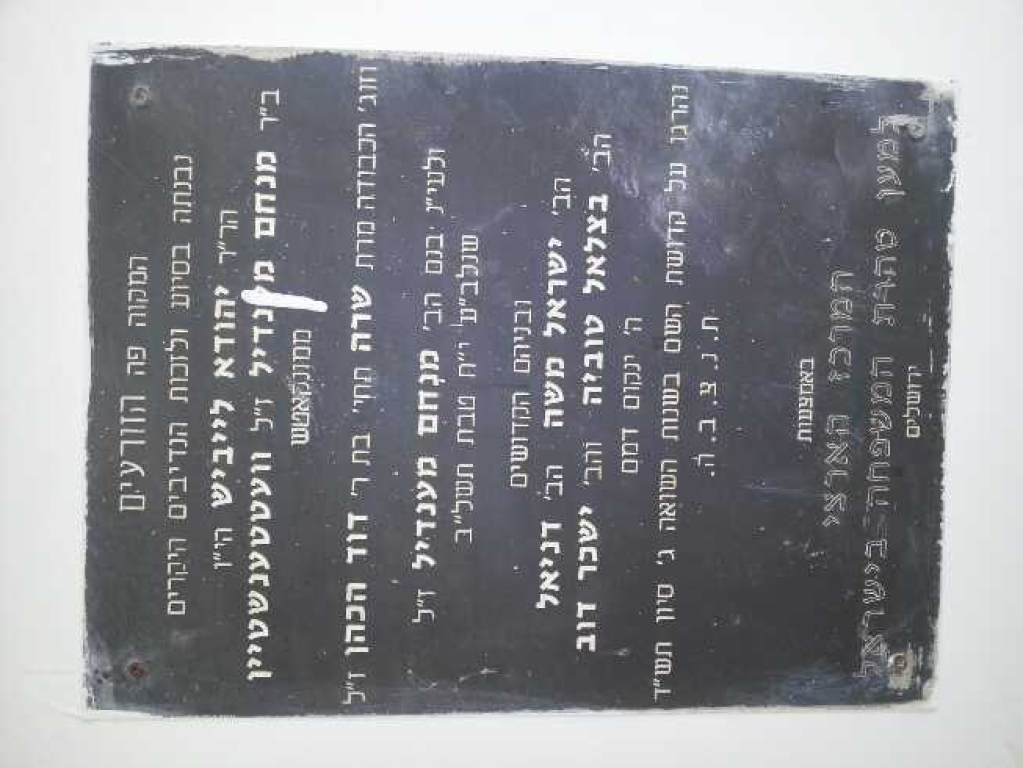 המקוה פה הזורעים
נבנתה בסיוע ולזכות הנדיבים היקרים
הר״ר יהודא לייביש הי״ו
ב״ר מנחם מענדיל ז״ל וועטטענשטיין
וזוג׳ הכבודה מרת שרה תחי׳ בת ר׳ דוד הכהן ז״ל
ולעי״נ בנם הב׳ מנחם מענדיל ז״ל
שנלב״ע י״ח טבת תשל״ב
ובניהם הקדושים
הב׳ ישראל משה הב׳ דניאל
הב׳ בצלאל טוביה והב׳ ישכר דוב
ה׳ ינקום דמם
נהרגו על קדושת השם בשנות השואה ג׳ סיון תש״ד
ת. נ. צ. ב. ה.
באמצעות
המרכז הארצי
למען טהרת המשפחה-בישראל
ירושלים